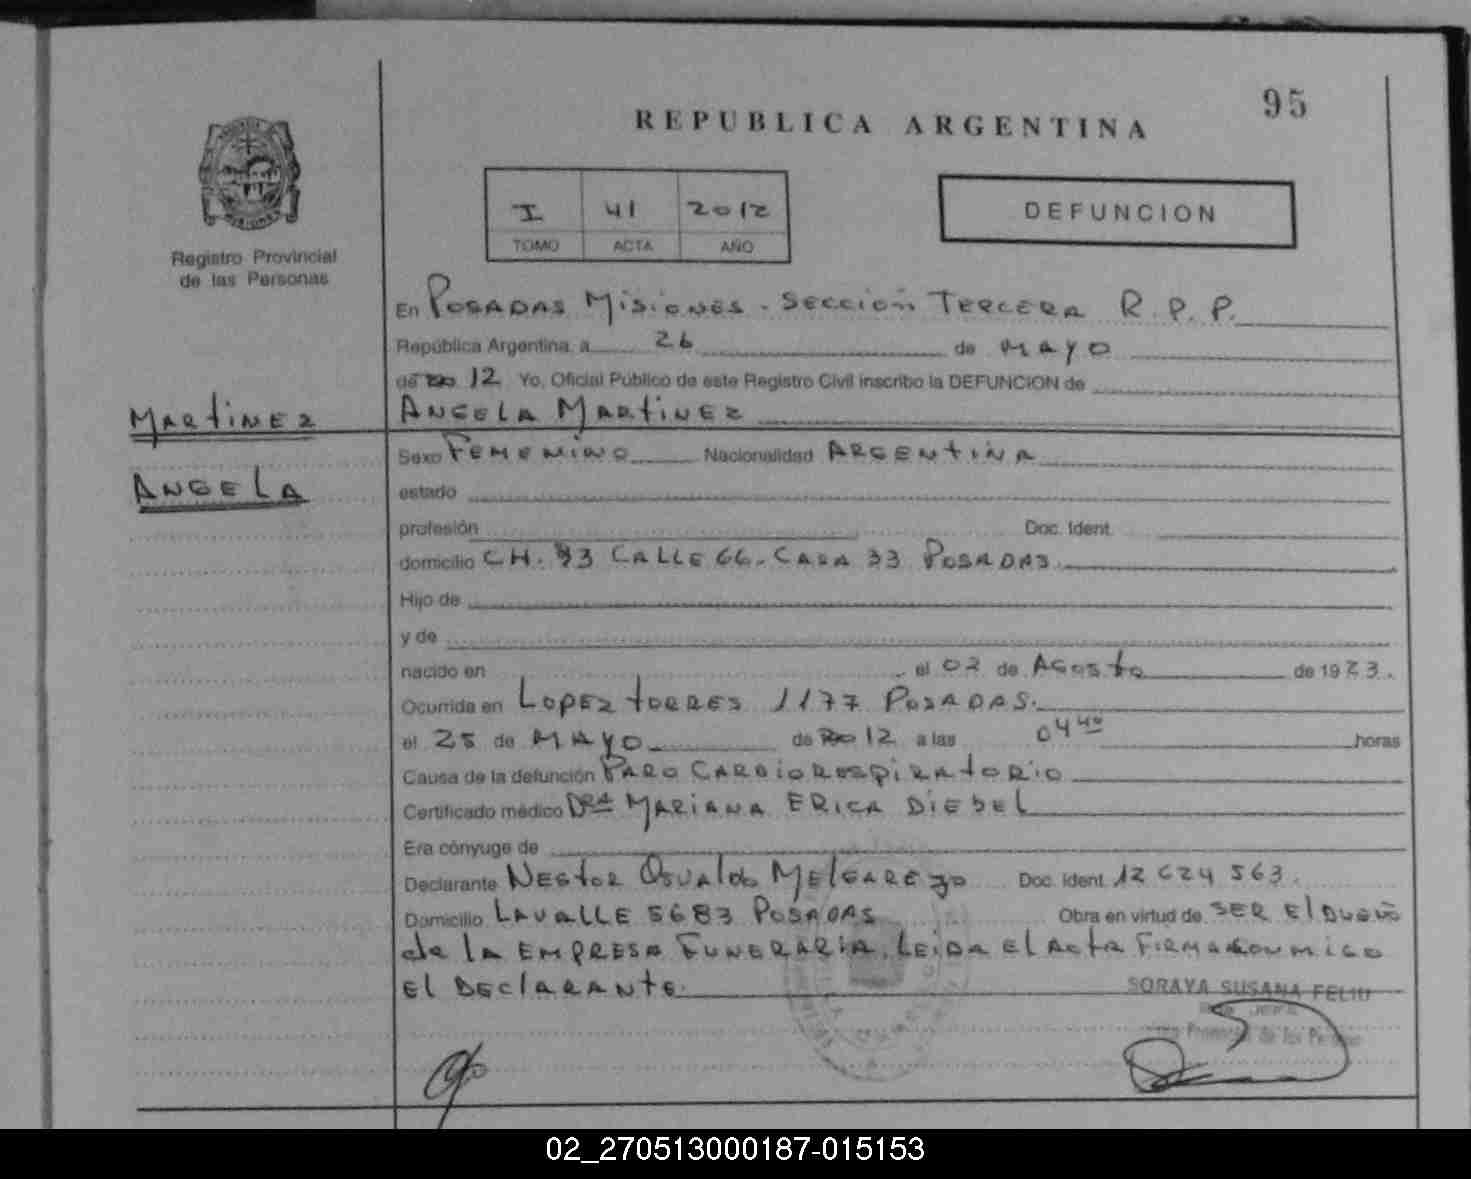 95
REPUBLICA ARGENTINA
I 41 2012
TOMO ACTA AÑO
DEFUNCION
Registro Provincial
de las Personas
En POSADAS MISIONES - SECCION TERCERA R.P.P.
República Argentina, a 26 de MAYO
de 12 Yo, Oficial Público de este Registro Civil inscribo la DEFUNCION de
MARTINEZ
ANGELA MARTINEZ
ANGELA
Sexo FEMENINO Nacionalidad ARGENTINA
estado
profesión Doc. Ident.
domicilio CH. 93 CALLE 66 - CASA 33 POSADAS.
Hijo de
y de
nacido en el 02 de AGOSTO de 1923.
Ocurrida en LOPEZ TORRES 1177 POSADAS.
el 25 de MAYO de 12 a las 04 40 horas
Causa de la defunción PARO CARDIORESPIRATORIO
Certificado médico DRA MARIANA ERICA DIEBEL
Era cónyuge de
Declarante NESTOR OSVALDO MELGAREJO Doc. Ident. 12 624 563.
Domicilio LAVALLE 5683 POSADAS Obra en virtud de SER El DUEÑO
de la EMPRESA FUNERARIA. LEIDA El ACTA FIRMA CONMIGO
El DECLARANTE.
SORAYA SUSANA FELIU
02_270513000187-015153